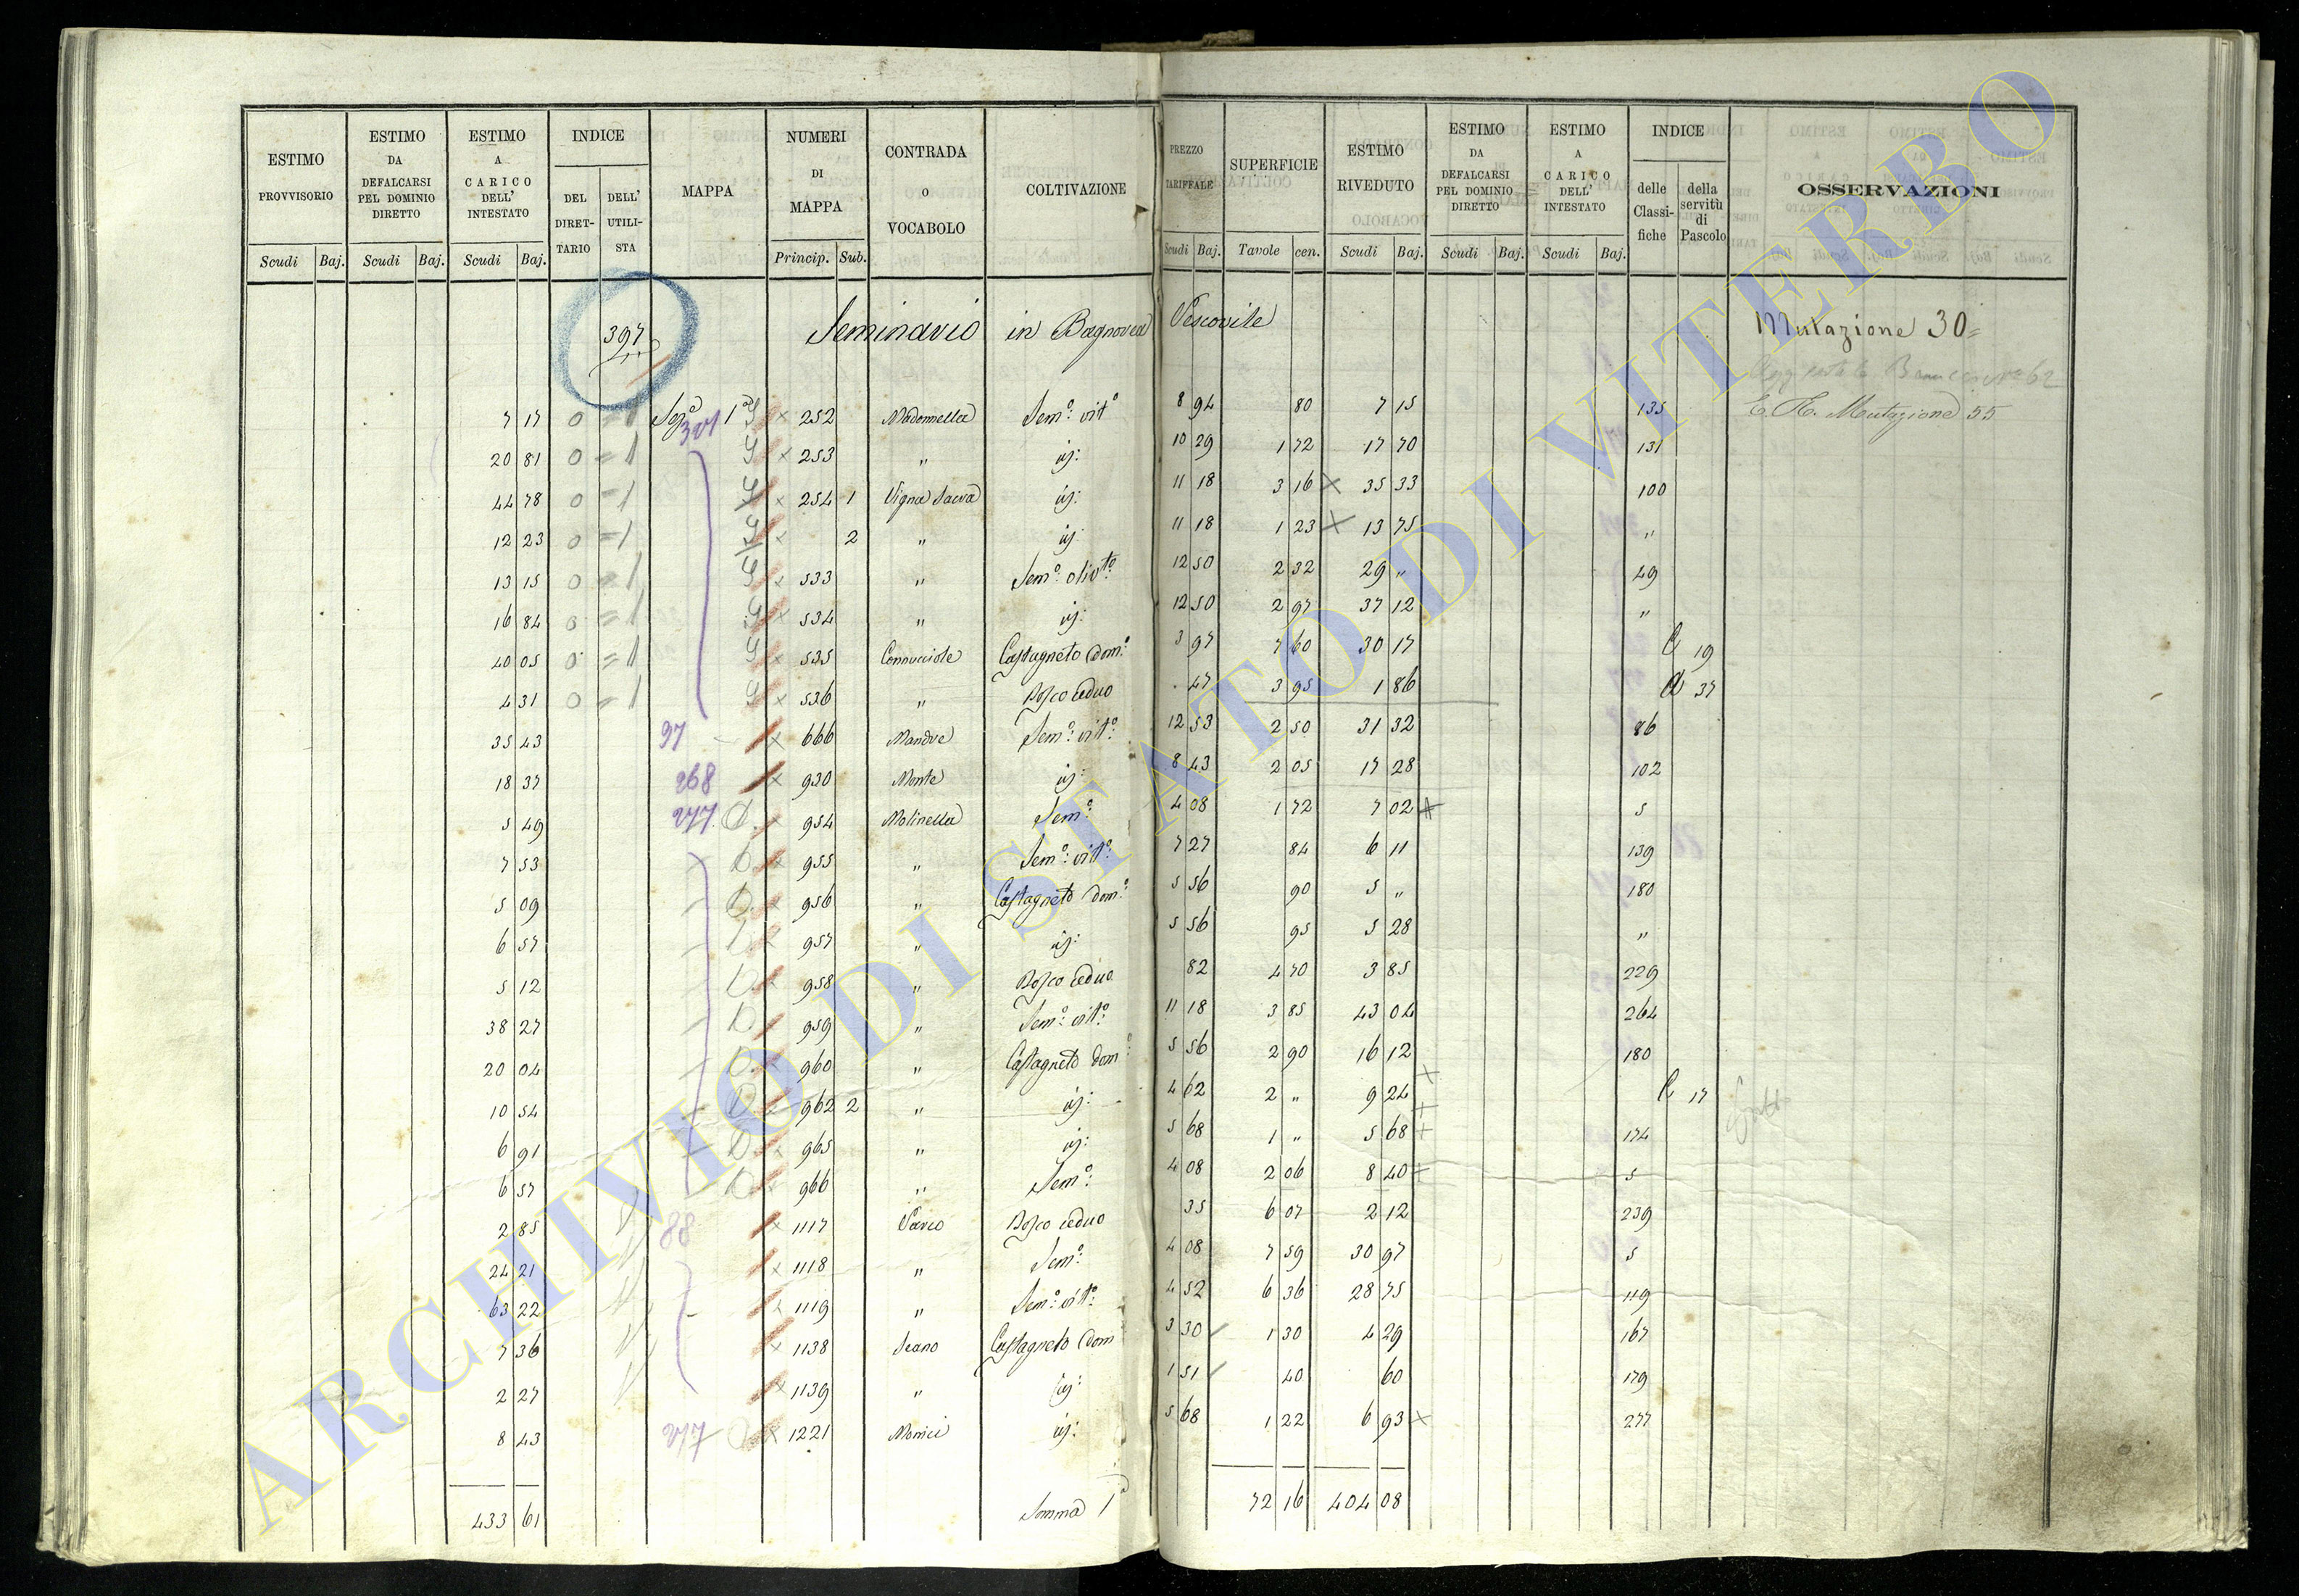 ESTIMO PROVVISORIO Scudi Baj. | ESTIMO DA DEFALCARSI PEL DOMINIO DIRETTO Scudi Baj. | ESTIMO A CARICO DELL' INTESTATO Scudi Baj. | INDICE DEL DIRET-TARIO DELL' UTILI-STA | MAPPA | NUMERI DI MAPPA Princip. Sub. | CONTRADA O VOCABOLO | COLTIVAZIONE | PREZZO TARIFFALE Scudi Baj. | SUPERFICIE Tavole cen. | ESTIMO RIVEDUTO Scudi Baj. | ESTIMO DA DEFALCARSI PEL DOMINIO DIRETTO Scudi Baj. | ESTIMO A CARICO DELL' INTESTATO Scudi Baj. | INDICE delle Classi-fiche della servitù di Pascolo | OSSERVAZIONI
397 Seminario in Bagnorea Vescovile Mutazione 30=
62
7 17 0 = 1 Sez.e 1a 321 × 252 Madonnella Sem.o vit.o 8 94 80 7 15 135 E. R. Mutazione 55
20 81 0 = 1 × 253 " id: 10 29 1 72 17 70 131
44 78 0 = 1 × 254 1 Vigna Sacra id: 11 18 3 16 × 35 33 100
12 23 0 = 1 × 2 " id: 11 18 1 23 × 13 75 "
13 15 0 = 1 × 533 " Sem.o oliv.to 12 50 2 32 29 " 49
16 84 0 = 1 × 534 " id: 12 50 2 97 37 12 "
40 05 0 = 1 × 535 Connucciole Castagneto dom.o 3 97 7 60 30 17 C 19
4 31 0 = 1 × 536 " Bosco ceduo 47 3 95 1 86 37
35 43 97 × 666 Mandre Sem.o vit.o 12 53 2 50 31 32 86
18 37 268 × 930 Monte id: 8 43 2 05 17 28 102
5 49 277 D. 954 Molinella Sem.o 4 08 1 72 7 02 × 5
7 53 D. 955 " Sem.o vit.o 7 27 84 6 11 139
5 09 D. × 956 " Castagneto dom.o 5 56 90 5 " 180
6 57 D. × 957 " id: 5 56 95 5 28 "
5 12 D. × 958 " Bosco ceduo 82 4 70 3 85 229
38 27 D. 959 " Sem.o vit.o 11 18 3 85 43 04 264
20 04 D. × 960 " Castagneto dom.o 5 56 2 90 16 12 180
10 54 D. 962 2 " id: 4 62 2 " 9 24 × C 17
6 91 D. × 965 " id: 5 68 1 " 5 68 + 174
6 57 D. 966 " Sem.o 4 08 2 06 8 40 + 5
2 85 88 × 1117 Parco Bosco ceduo 35 6 07 2 12 239
24 21 × 1118 " Sem.o 4 08 7 59 30 97 5
63 22 × 1119 " Sem.o vit.o 4 52 6 36 28 75 119
7 36 × 1138 Scano Castagneto dom 3 30 1 30 4 29 167
2 27 × 1139 " id: 1 51 40 60 179
8 43 277 × 1221 Monici id: 5 68 1 22 6 93 × 277
433 61 Somma 1a 72 16 404 08
ARCHIVIO DI STATO DI VITERBO